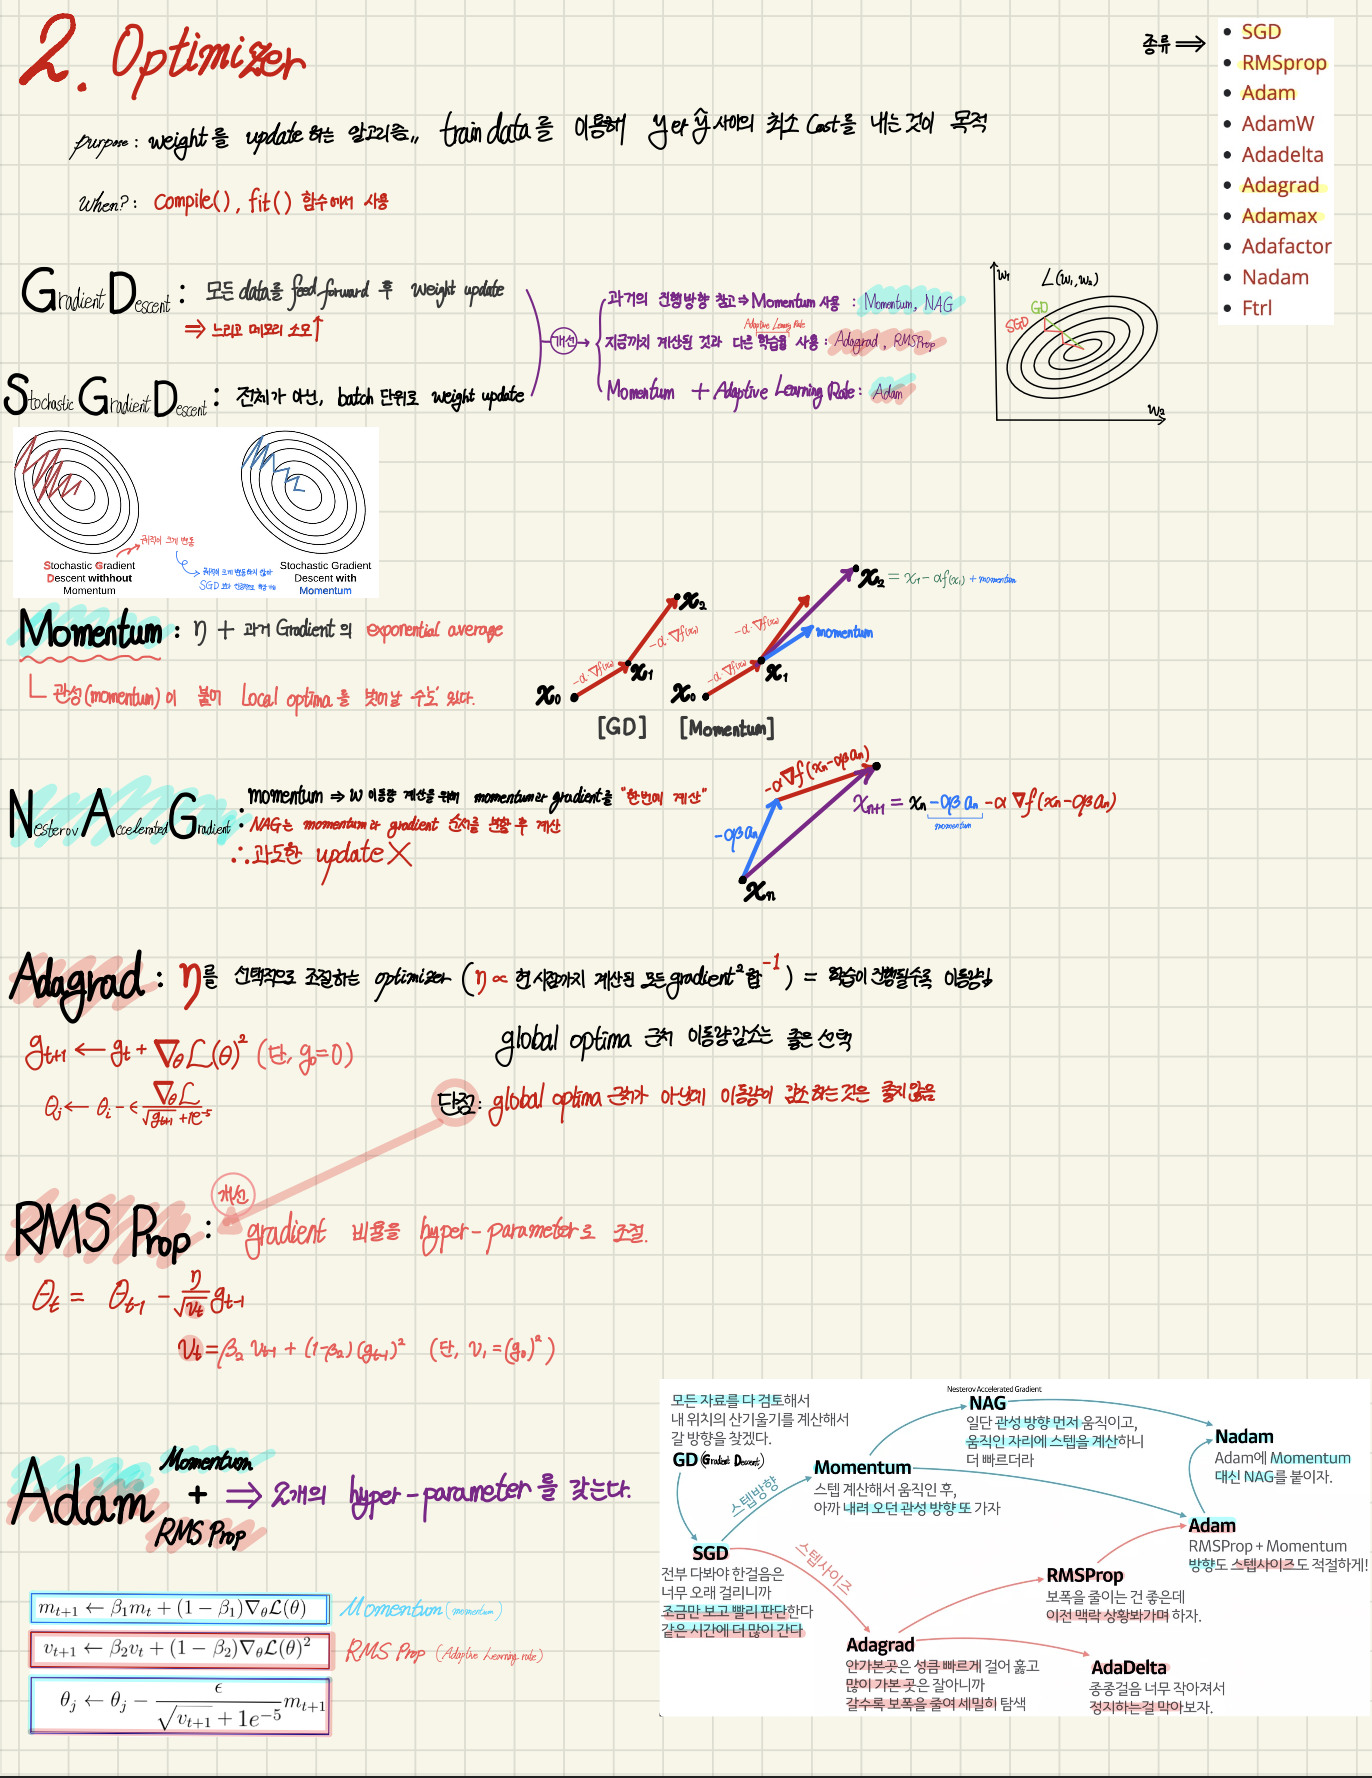 2. Optimizer
종류 ⇒
• SGD
• RMSprop
• Adam
• AdamW
• Adadelta
• Adagrad
• Adamax
• Adafactor
• Nadam
• Ftrl
purpose : weight를 update 하는 알고리즘,, train data를 이용해 y와 ŷ사이의 최소 Cost를 내는 것이 목적
When? : Compile(), fit() 함수에서 사용
Gradient Descent : 모든 data를 feed forward 후 weight update
⇒ 느리고 메모리 소모↑
Stochastic Gradient Descent : 전체가 아닌, batch 단위로 weight update
개선
과거의 진행방향 참고 ⇒ Momentum 사용 : Momentum, NAG
Adaptive Learning Rate
지금까지 계산된 것과 다른 학습율 사용 : Adagrad, RMSProp
Momentum + Adaptive Learning Rate : Adam
w₁
L(w₁, w₂)
GD
SGD
w₂
궤적이 크게 변동
Stochastic Gradient
Descent withhout
Momentum
궤적이 크게 변동하지 않아
SGD
Stochastic Gradient
Descent with
Momentum
Momentum : η + 과거 Gradient의 exponential average
관성(momentum)이 붙어 Local optima를 벗어날 수도 있다.
x₀
-α·∇f(x₀)
x₁
-α·∇f(x₁)
x₂
[GD]
x₀
-α·∇f(x₀)
x₁
-α·∇f(x₁)
momentum
x₂ = x₁ - αf(x₁) + momentum
[Momentum]
Nesterov Accelerated Gradient :
momentum ⇒ w 이동량 계산을 위해 momentum과 gradient를 "한번에 계산"
NAG는 momentum과 gradient 순서를 변황 후 계산
∴ 과도한 update X
xₙ
-αβaₙ
-α∇f(xₙ-αβaₙ)
xₙ₊₁ = xₙ -αβaₙ -α ∇f(xₙ-αβaₙ)
momentum
Adagrad : η를 선택적으로 조절하는 optimizer (η ∝ 현 시점까지 계산된 모든 gradient² 합⁻¹) = 학습이 진행될수록 이동량↓
global optima 근처 이동량감소는 좋은 선택
gₜ₊₁ ← gₜ + ∇_θ L(θ)² (단, g₀=0)
θⱼ ← θᵢ - ϵ ∇_θ L / √gₜ₊₁ + 1e⁻⁵
단점 : global optima 근처가 아닌데 이동량이 감소하는 것은 좋지 않음
개선
RMS Prop : gradient 비율을 hyper-parameter로 조절.
θₜ = θₜ₋₁ - η/√vₜ gₜ₋₁
vₜ = β₂ vₜ₋₁ + (1-β₂)(gₜ₋₁)² (단, v₁ = (g₀)²)
Adam
Momentum
+
RMS Prop
⇒ 2개의 hyper-parameter를 갖는다.
mₜ₊₁ ← β₁mₜ + (1 − β₁)∇_θL(θ)
Momentum (momentum)
vₜ₊₁ ← β₂vₜ + (1 − β₂)∇_θL(θ)²
RMS Prop (Adaptive Learning rate)
θⱼ ← θⱼ − ϵ / √vₜ₊₁ + 1e⁻⁵ mₜ₊₁
모든 자료를 다 검토해서
내 위치의 산기울기를 계산해서
갈 방향을 찾겠다.
GD (Gradient Descent)
스텝방향
SGD
전부 다봐야 한걸음은
너무 오래 걸리니까
조금만 보고 빨리 판단한다
같은 시간에 더 많이 간다
스텝사이즈
Momentum
스텝 계산해서 움직인 후,
아까 내려 오던 관성 방향 또 가자
Nesterov Accelerated Gradient
NAG
일단 관성 방향 먼저 움직이고,
움직인 자리에 스텝을 계산하니
더 빠르더라
Nadam
Adam에 Momentum
대신 NAG를 붙이자.
Adam
RMSProp + Momentum
방향도 스텝사이즈도 적절하게!
RMSProp
보폭을 줄이는 건 좋은데
이전 맥락 상황봐가며 하자.
Adagrad
안가본곳은 성큼 빠르게 걸어 훑고
많이 가본 곳은 잘아니까
갈수록 보폭을 줄여 세밀히 탐색
AdaDelta
종종걸음 너무 작아져서
정지하는걸 막아보자.